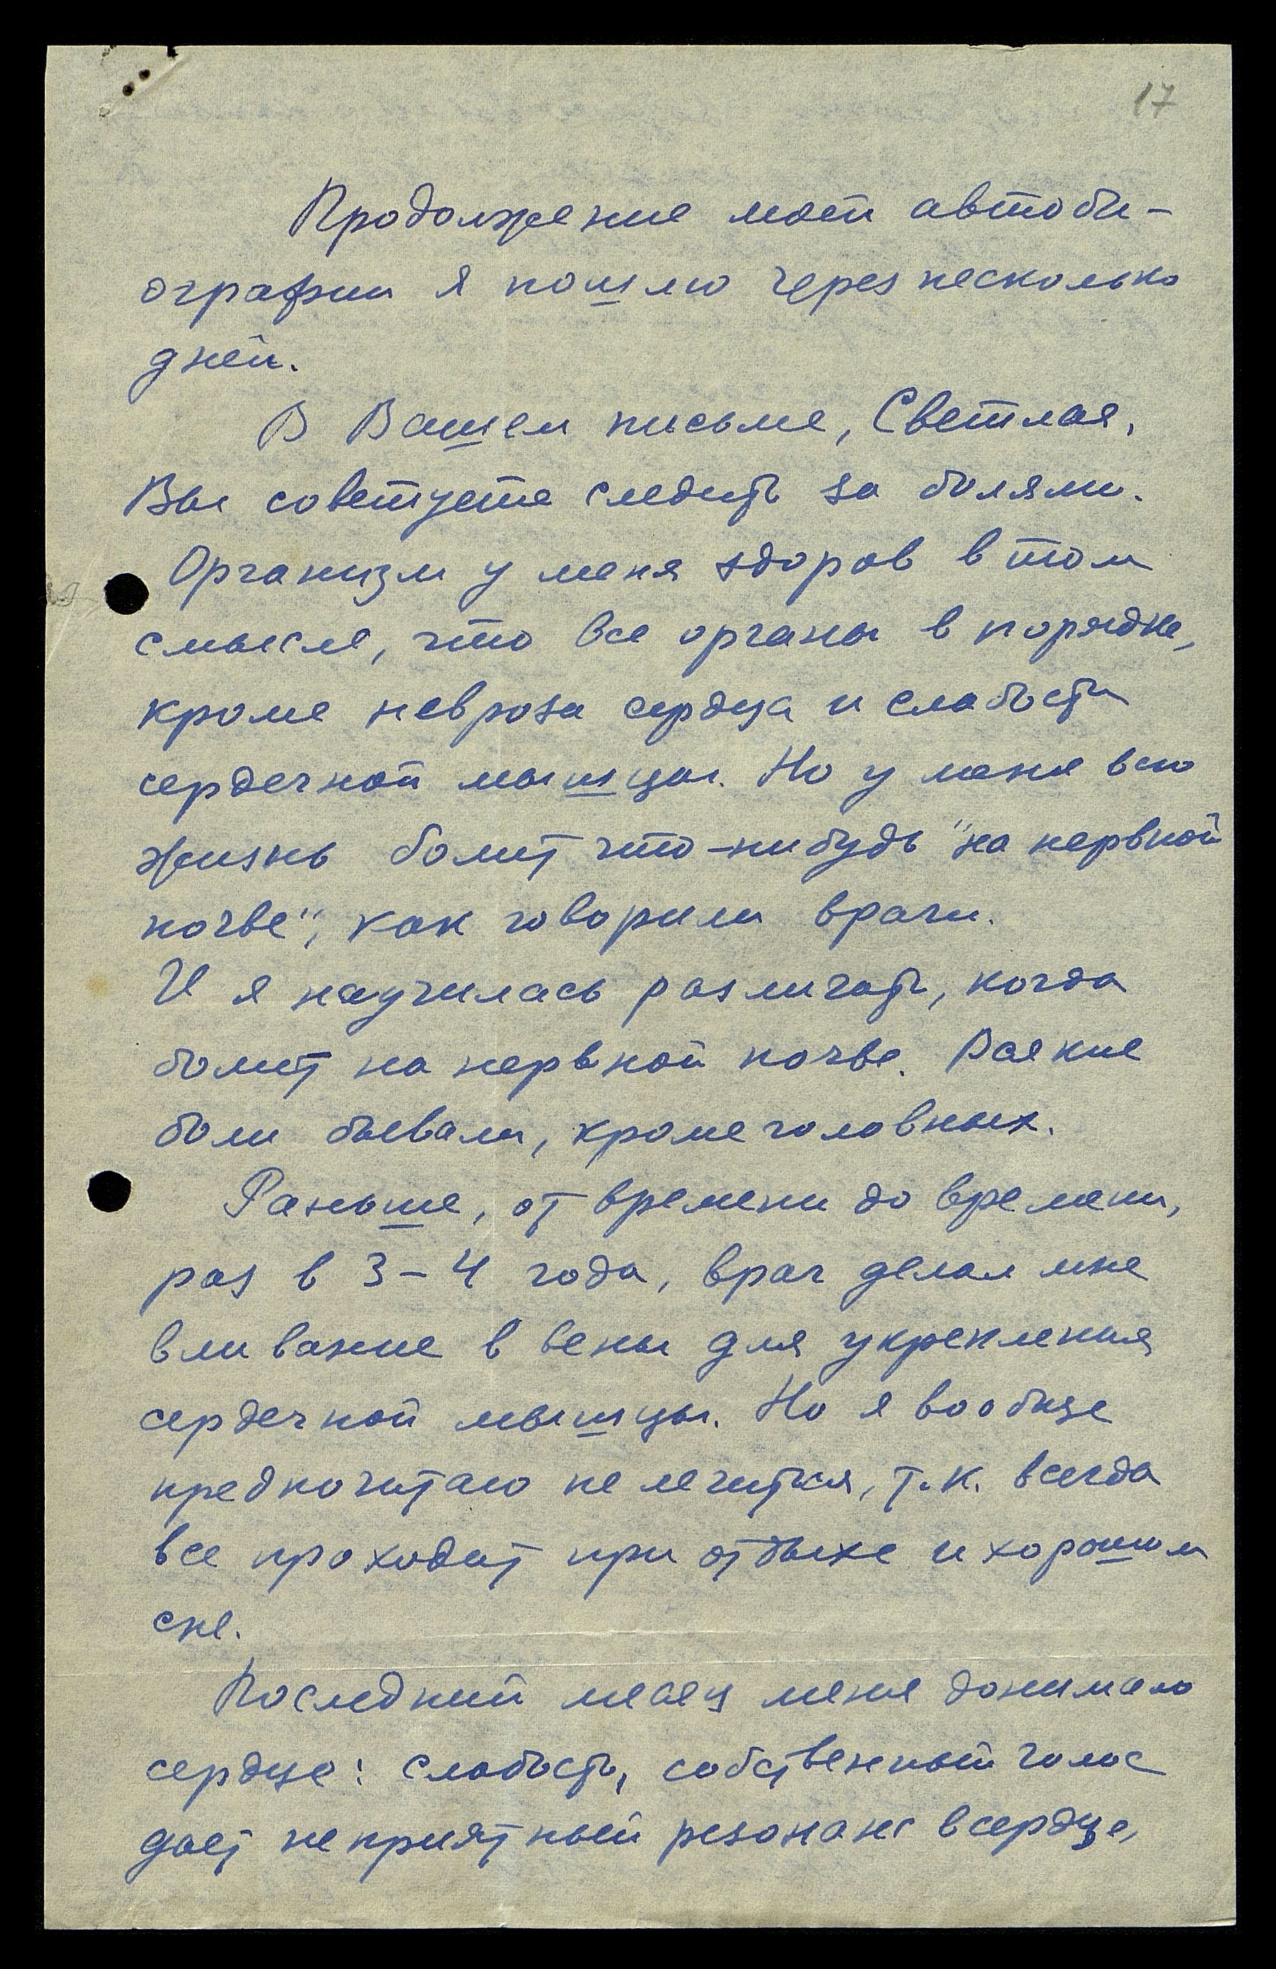 17
Продолжение моей автоби-
ографии я пошлю через несколько
дней.
В Вашем письме, Светлая,
Вы советуете следить за болями.
Организм у меня здоров в том
смысле, что все органы в порядке,
кроме невроза сердца и слабости
сердечной мышцы. Но у меня всю
жизнь болит что-нибудь "на нервной
почве", как говорили врачи.
И я научилась различать, когда
болит на нервной почве. Всякие
боли бывали, кроме головных.
Раньше, от времени до времени,
раз в 3-4 года, врач делал мне
вливание в вены для укрепления
сердечной мышцы. Но я вообще
предпочитаю не лечиться, т.к. всегда
все проходит при отдыхе и хорошем
сне.
Последний месяц меня донимало
сердце: слабость, собственный голос
дает неприятный резонанс в сердце,